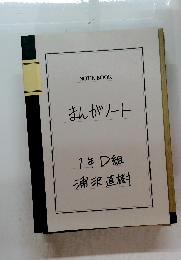 NOTE BOOK
まんがノート
1年D組
浦沢直樹